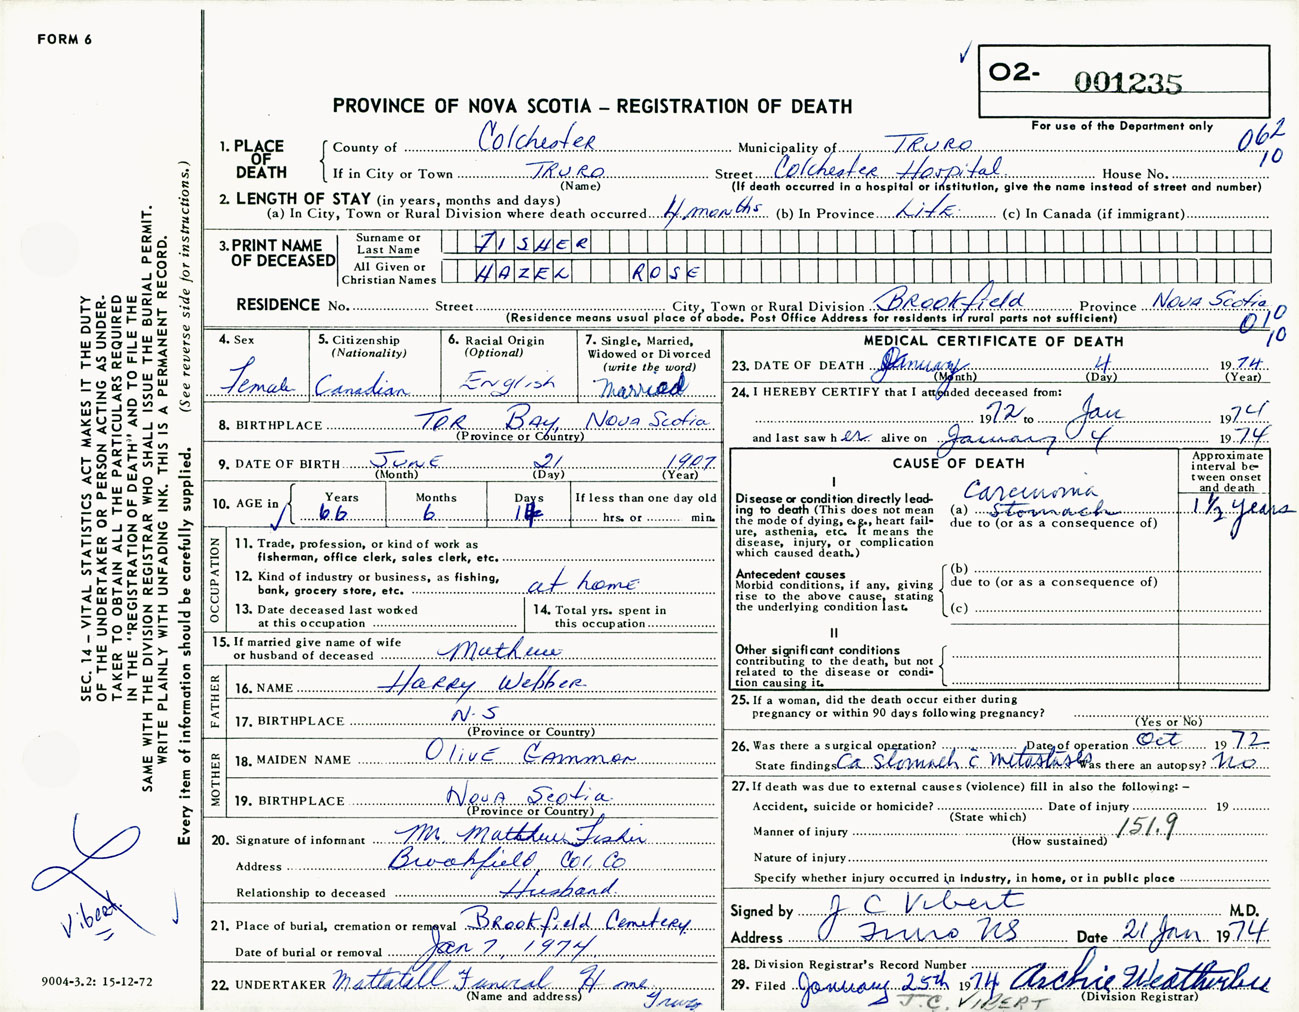 FORM 6
O2- 001235
PROVINCE OF NOVA SCOTIA – REGISTRATION OF DEATH
For use of the Department only
062
10
1. PLACE OF DEATH
County of Colchester Municipality of TRURO
If in City or Town TRURO Street Colchester Hospital House No.
(Name) (If death occurred in a hospital or institution, give the name instead of street and number)
2. LENGTH OF STAY (in years, months and days)
(a) In City, Town or Rural Division where death occurred 4 months (b) In Province LIFE (c) In Canada (if immigrant)
3. PRINT NAME OF DECEASED
Surname or Last Name FISHER
All Given or Christian Names HAZEL ROSE
RESIDENCE No. Street City, Town or Rural Division Brookfield Province Nova Scotia
(Residence means usual place of abode. Post Office Address for residents in rural parts not sufficient)
010
10
4. Sex Female
5. Citizenship (Nationality) Canadian
6. Racial Origin (Optional) English
7. Single, Married, Widowed or Divorced (write the word) Married
8. BIRTHPLACE TOR BAY, NOVA Scotia
(Province or Country)
9. DATE OF BIRTH JUNE 21 1907
(Month) (Day) (Year)
10. AGE in Years 66 Months 6 Days 14 If less than one day old hrs. or min.
OCCUPATION
11. Trade, profession, or kind of work as fisherman, office clerk, sales clerk, etc.
12. Kind of industry or business, as fishing, bank, grocery store, etc. at home
13. Date deceased last worked at this occupation
14. Total yrs. spent in this occupation
15. If married give name of wife or husband of deceased Mathew
FATHER
16. NAME HARRY Webber
17. BIRTHPLACE N.S
(Province or Country)
MOTHER
18. MAIDEN NAME OLIVE GAMMON
19. BIRTHPLACE Nova Scotia
(Province or Country)
20. Signature of informant Mr. Matthew Fisher
Address Brookfield Col. Co
Relationship to deceased Husband
21. Place of burial, cremation or removal Brookfield Cemetery
Date of burial or removal Jan 7, 1974
22. UNDERTAKER Mattatall Funeral Home
(Name and address) Truro
MEDICAL CERTIFICATE OF DEATH
23. DATE OF DEATH January 4 1974
(Month) (Day) (Year)
24. I HEREBY CERTIFY that I attended deceased from:
1972 to Jan 1974
and last saw her alive on January 4 1974
CAUSE OF DEATH
Approximate interval between onset and death
I
Disease or condition directly leading to death (This does not mean the mode of dying, e.g., heart failure, asthenia, etc. It means the disease, injury, or complication which caused death.)
(a) Carcinoma Stomach 1 1/2 years
due to (or as a consequence of)
Antecedent causes
Morbid conditions, if any, giving rise to the above cause, stating the underlying condition last.
(b)
due to (or as a consequence of)
(c)
II
Other significant conditions contributing to the death, but not related to the disease or condition causing it.
25. If a woman, did the death occur either during pregnancy or within 90 days following pregnancy?
(Yes or No)
26. Was there a surgical operation? Date of operation Oct 1972
State findings Ca Stomach c̄ metastases Was there an autopsy? No
27. If death was due to external causes (violence) fill in also the following: –
Accident, suicide or homicide? Date of injury 19
(State which)
Manner of injury 151.9
(How sustained)
Nature of injury
Specify whether injury occurred in industry, in home, or in public place
Signed by J C Vibert M.D.
Address Truro NS Date 21 Jan 1974
28. Division Registrar's Record Number
29. Filed January 25th 1974 Archie Weatherbee
(Division Registrar)
J.C. VIBERT
SEC. 14 – VITAL STATISTICS ACT MAKES IT THE DUTY
OF THE UNDERTAKER OR PERSON ACTING AS UNDER-
TAKER TO OBTAIN ALL THE PARTICULARS REQUIRED
IN THE "REGISTRATION OF DEATH" AND TO FILE THE
SAME WITH THE DIVISION REGISTRAR WHO SHALL ISSUE THE BURIAL PERMIT.
WRITE PLAINLY WITH UNFADING INK. THIS IS A PERMANENT RECORD.
Every item of information should be carefully supplied. (See reverse side for instructions.)
Vibert
9004-3.2: 15-12-72